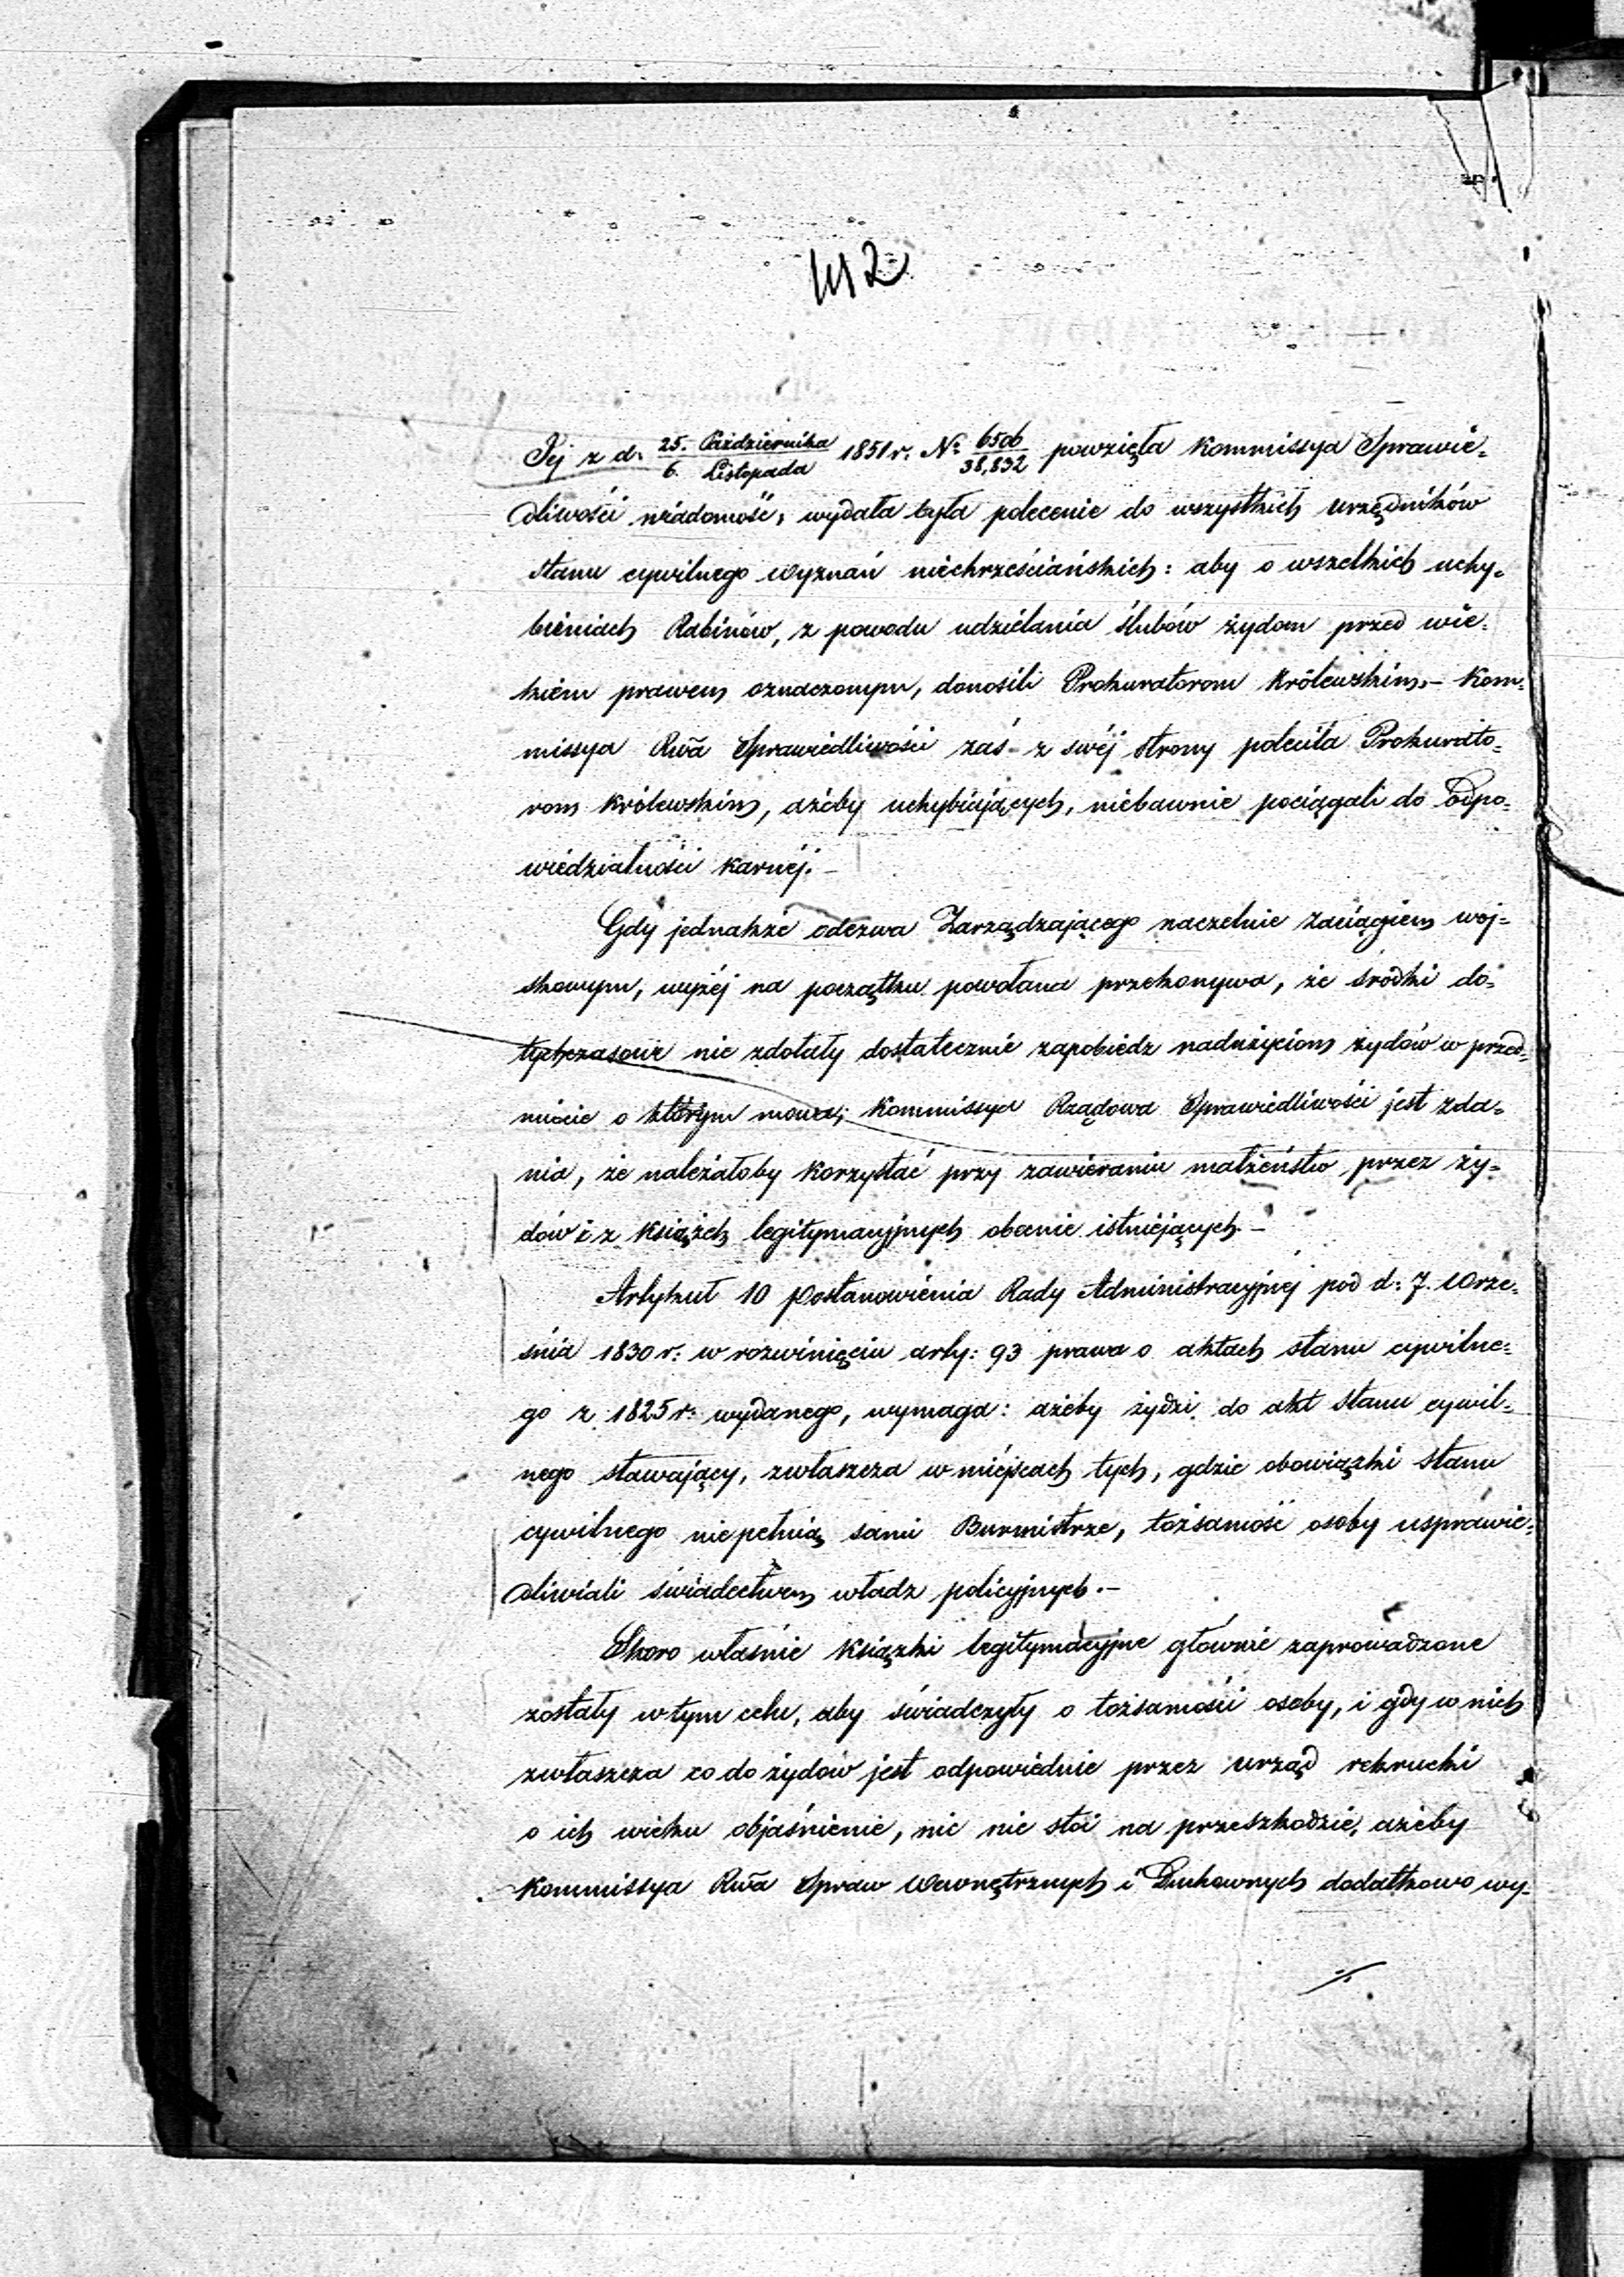 112
Jéj z d. 25. Października / 6. Listopada 1851 r. Nr 6506 / 38,832 powzięła Kommissya Sprawie-
dliwości wiadomość, wydała była polecenie do wszystkich urzędników
stanu cywilnego wyznań niechrześciańskich: aby o wszelkich uchy-
bieniach Rabinów, z powodu udzielania ślubów żydom przed wie-
kiem prawem oznaczonym, donosili Prokuratorom Królewskim.- Kom-
missya Rwa Sprawiedliwości zaś z swéj strony poleciła Prokurato-
rom Królewskim, ażeby uchybiających, niebawnie pociągali do Odpo-
wiedzialności Karnéj.-
Gdy jednakże odezwa Zarządzającego naczelnie Zaciągiem woj-
skowym, wyżéj na początku powołana przekonywa, że środki do-
tychczasowe nie zdołały dostatecznie zapobiedz nadużyciom żydów w przed-
miocie o którym mowa; Kommissya Rządowa Sprawiedliwości jest zda-
nia, że należałoby Korzystać przy zawieraniu małżeństw przez ży-
dów i z Książek legitymacyjnych obecnie istniejących.-
Artykuł 10 Postanowienia Rady Administracyjnéj pod d: 7. Wrze-
śnia 1830 r: w rozwinięciu arty: 93 prawa o aktach stanu cywilne-
go z 1825 r: wydanego, wymaga: ażeby żydzi do akt stanu cywil-
nego stawający, zwłaszcza w miéjscach tych, gdzie obowiązki stanu
cywilnego niepełnią sami Burmistrze, tożsamość osoby usprawie-
dliwiali świadectwem władz policyjnych.-
Skoro właśnie Książki legitymacyjne głównie zaprowadzone
zostały w tym celu, aby świadczyły o tożsamości osoby, i gdy w nich
zwłaszcza co do żydów jest odpowiednie przez urząd rekrucki
o ich wieku objaśnienie, nic nie stoi na przeszkodzie, ażeby
Kommissya Rwa Spraw Wewnętrznych i Duchownych dodatkowo wy-